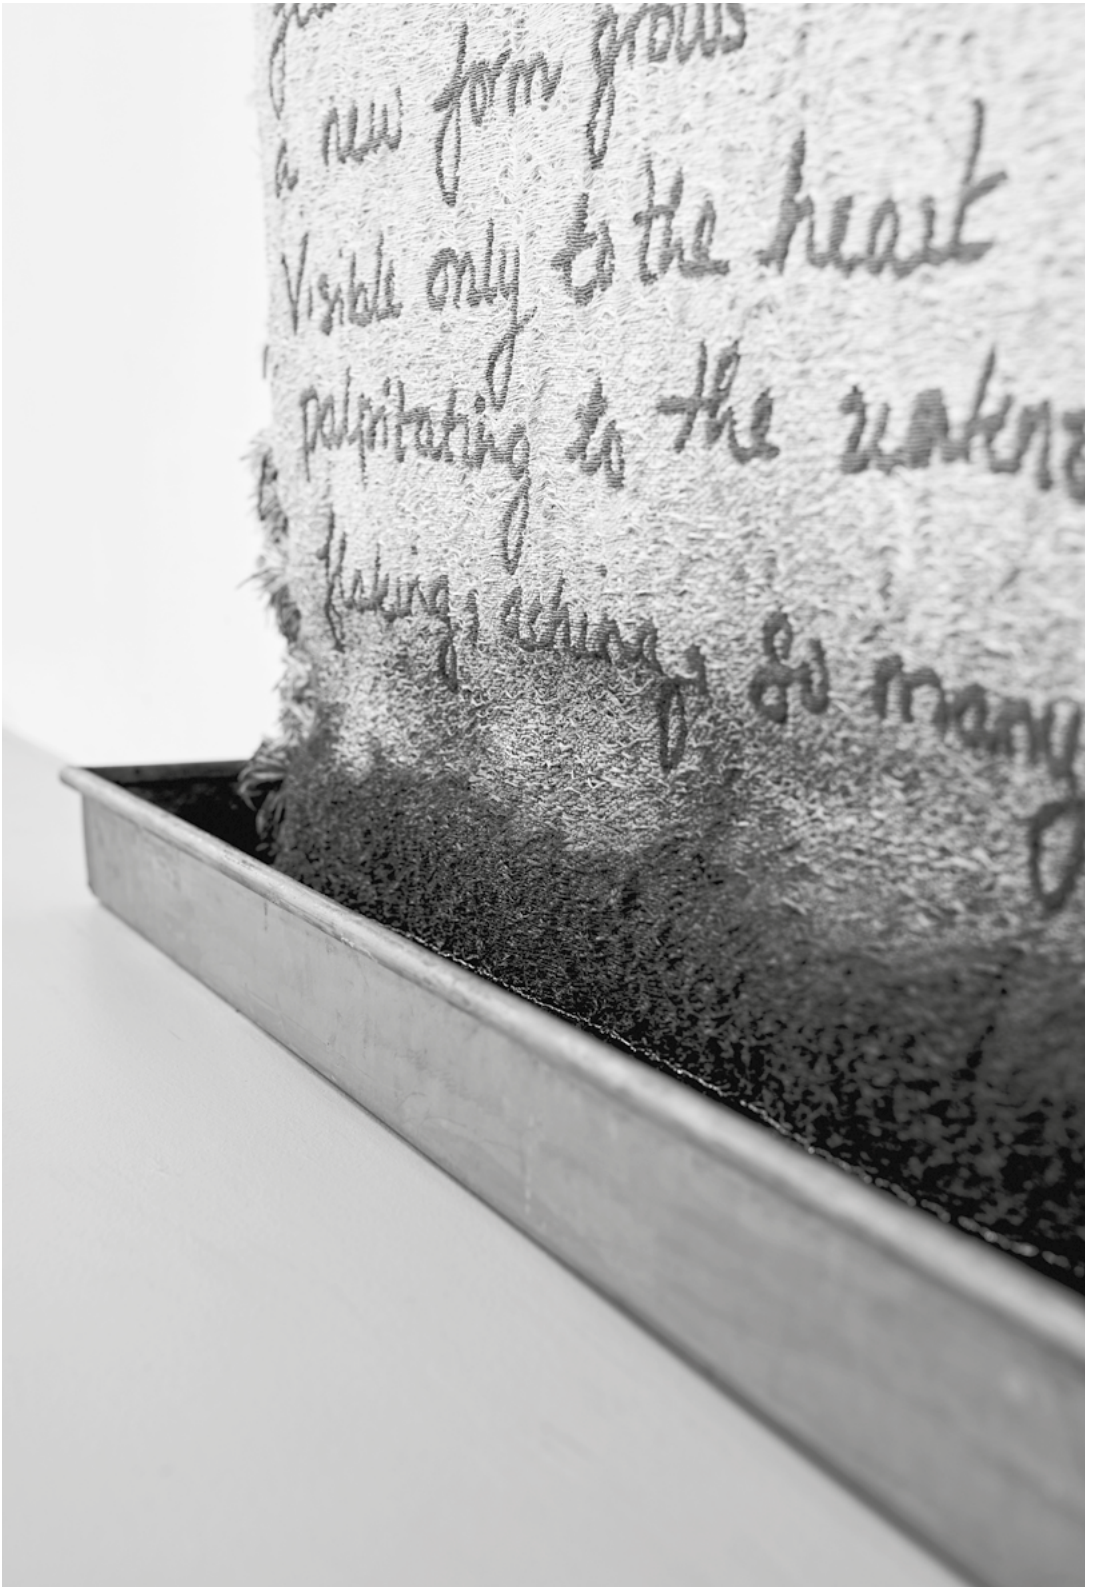 a new form grows
Visible only to the heart
palpitating to the
Risking, aching, So many